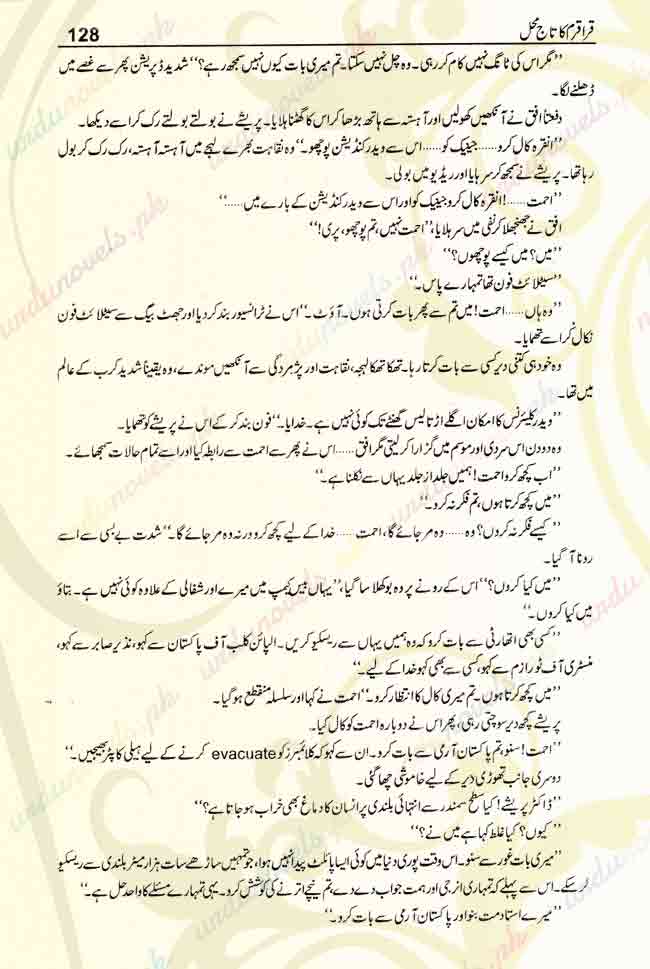 قراقرم کا تاج محل
128
’’مگر اس کی ٹانگ نہیں کام کر رہی۔ وہ چل نہیں سکتا۔ تم میری بات کیوں نہیں سمجھ رہے؟‘‘ شدید ڈپریشن پھر سے غصے میں
ڈھلنے لگا۔
دفعتاً افق نے آنکھیں کھولیں اور آہستہ سے ہاتھ بڑھا کر اس کا گھٹنا ہلایا۔ پریشے نے بولتے بولتے رک کر اسے دیکھا۔
’’انقرہ کال کرو...... جینیک کو...... اس سے ویدر کنڈیشن پوچھو۔‘‘ وہ نقاہت بھرے لہجے میں آہستہ آہستہ، رک رک کر بول
رہا تھا۔ پریشے نے سمجھ کر سر ہلایا اور ریڈیو میں بولی۔
’’احمت......! انقرہ کال کرو جینیک کو اور اس سے ویدر کنڈیشن کے بارے میں......‘‘
افق نے جھنجھلا کر نفی میں سر ہلایا، ’’احمت نہیں، تم پوچھو، پری!‘‘
’’میں؟ میں کیسے پوچھوں؟‘‘
’’سیٹلائٹ فون تھا تمہارے پاس۔‘‘
’’وہ ہاں...... احمت! میں تم سے پھر بات کرتی ہوں۔ آؤٹ۔‘‘ اس نے ٹرانسیور بند کر دیا اور جھٹ بیگ سے سیٹلائٹ فون
نکال کر اسے تھمایا۔
وہ خود ہی کتنی دیر کسی سے بات کرتا رہا۔ تھکا تھکا لہجہ، نقاہت اور پژمردگی سے آنکھیں موندے، وہ یقیناً شدید کرب کے عالم
میں تھا۔
’’ویدر کلیئرنس کا امکان اگلے اڑتالیس گھنٹے تک کوئی نہیں ہے۔ خدایا۔‘‘ فون بند کر کے اس نے پریشے کو تھمایا۔
وہ دو دن اس سردی اور موسم میں گزارا کر لیتی مگر افق...... اس نے پھر سے احمت سے رابطہ کیا اور اسے تمام حالات سمجھائے۔
’’اب کچھ کرو احمت! ہمیں جلد از جلد یہاں سے نکلنا ہے۔‘‘
’’میں کچھ کرتا ہوں، تم فکر نہ کرو۔‘‘
’’کیسے فکر نہ کروں؟ وہ...... وہ مر جائے گا، احمت...... خدا کے لیے کچھ کرو ورنہ وہ مر جائے گا۔‘‘ شدت بے بسی سے اسے
رونا آ گیا۔
’’میں کیا کروں؟‘‘ اس کے رونے پر وہ بوکھلا سا گیا، ’’یہاں بیس کیمپ میں میرے اور شفالی کے علاوہ کوئی نہیں ہے۔ بتاؤ
میں کیا کروں۔‘‘
’’کسی بھی اتھارٹی سے بات کرو کہ وہ ہمیں یہاں سے ریسکیو کریں۔ الپائن کلب آف پاکستان سے کہو، نذیر صابر سے کہو،
منسٹری آف ٹورازم سے کہو، کسی سے بھی کہو خدا کے لیے۔‘‘
’’میں کچھ کرتا ہوں۔ تم میری کال کا انتظار کرو۔‘‘ احمت نے کہا اور سلسلہ منقطع ہو گیا۔
پریشے کچھ دیر سوچتی رہی، پھر اس نے دوبارہ احمت کو کال کیا۔
’’احمت! سنو، تم پاکستان آرمی سے بات کرو۔ ان سے کہو کہ کلائمبرز کو evacuate کرنے کے لیے ہیلی کاپٹر بھیجیں۔‘‘
دوسری جانب تھوڑی دیر کے لیے خاموشی چھا گئی۔
’’ڈاکٹر پریشے! کیا سطح سمندر سے انتہائی بلندی پر انسان کا دماغ بھی خراب ہو جاتا ہے؟‘‘
’’کیوں؟ کیا غلط کہا ہے میں نے؟‘‘
’’میری بات غور سے سنو۔ اس وقت پوری دنیا میں کوئی ایسا پائلٹ پیدا نہیں ہوا، جو تمہیں ساڑھے سات ہزار میٹر بلندی سے ریسکیو
کر سکے۔ اس سے پہلے کہ تمہاری انرجی اور ہمت جواب دے دے، تم نیچے اترنے کی کوشش کرو۔ یہی تمہارے مسئلے کا واحد حل ہے۔‘‘
’’میرے استاد مت بنو اور پاکستان آرمی سے بات کرو۔‘‘
urdunovels.pk